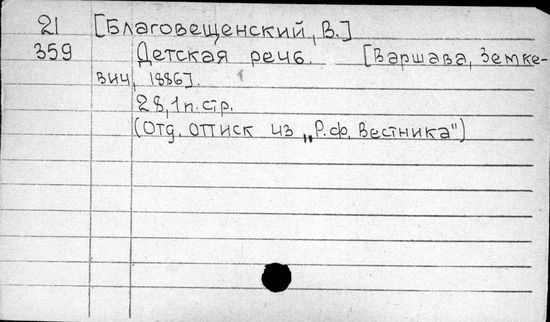 21 [Благовещенский, В.]
359 Детская речь. [Варшава, Земке-
вич, 1886].
28, 1 п. стр.
(Отд. оттиск из „Р. ф. Вестника")